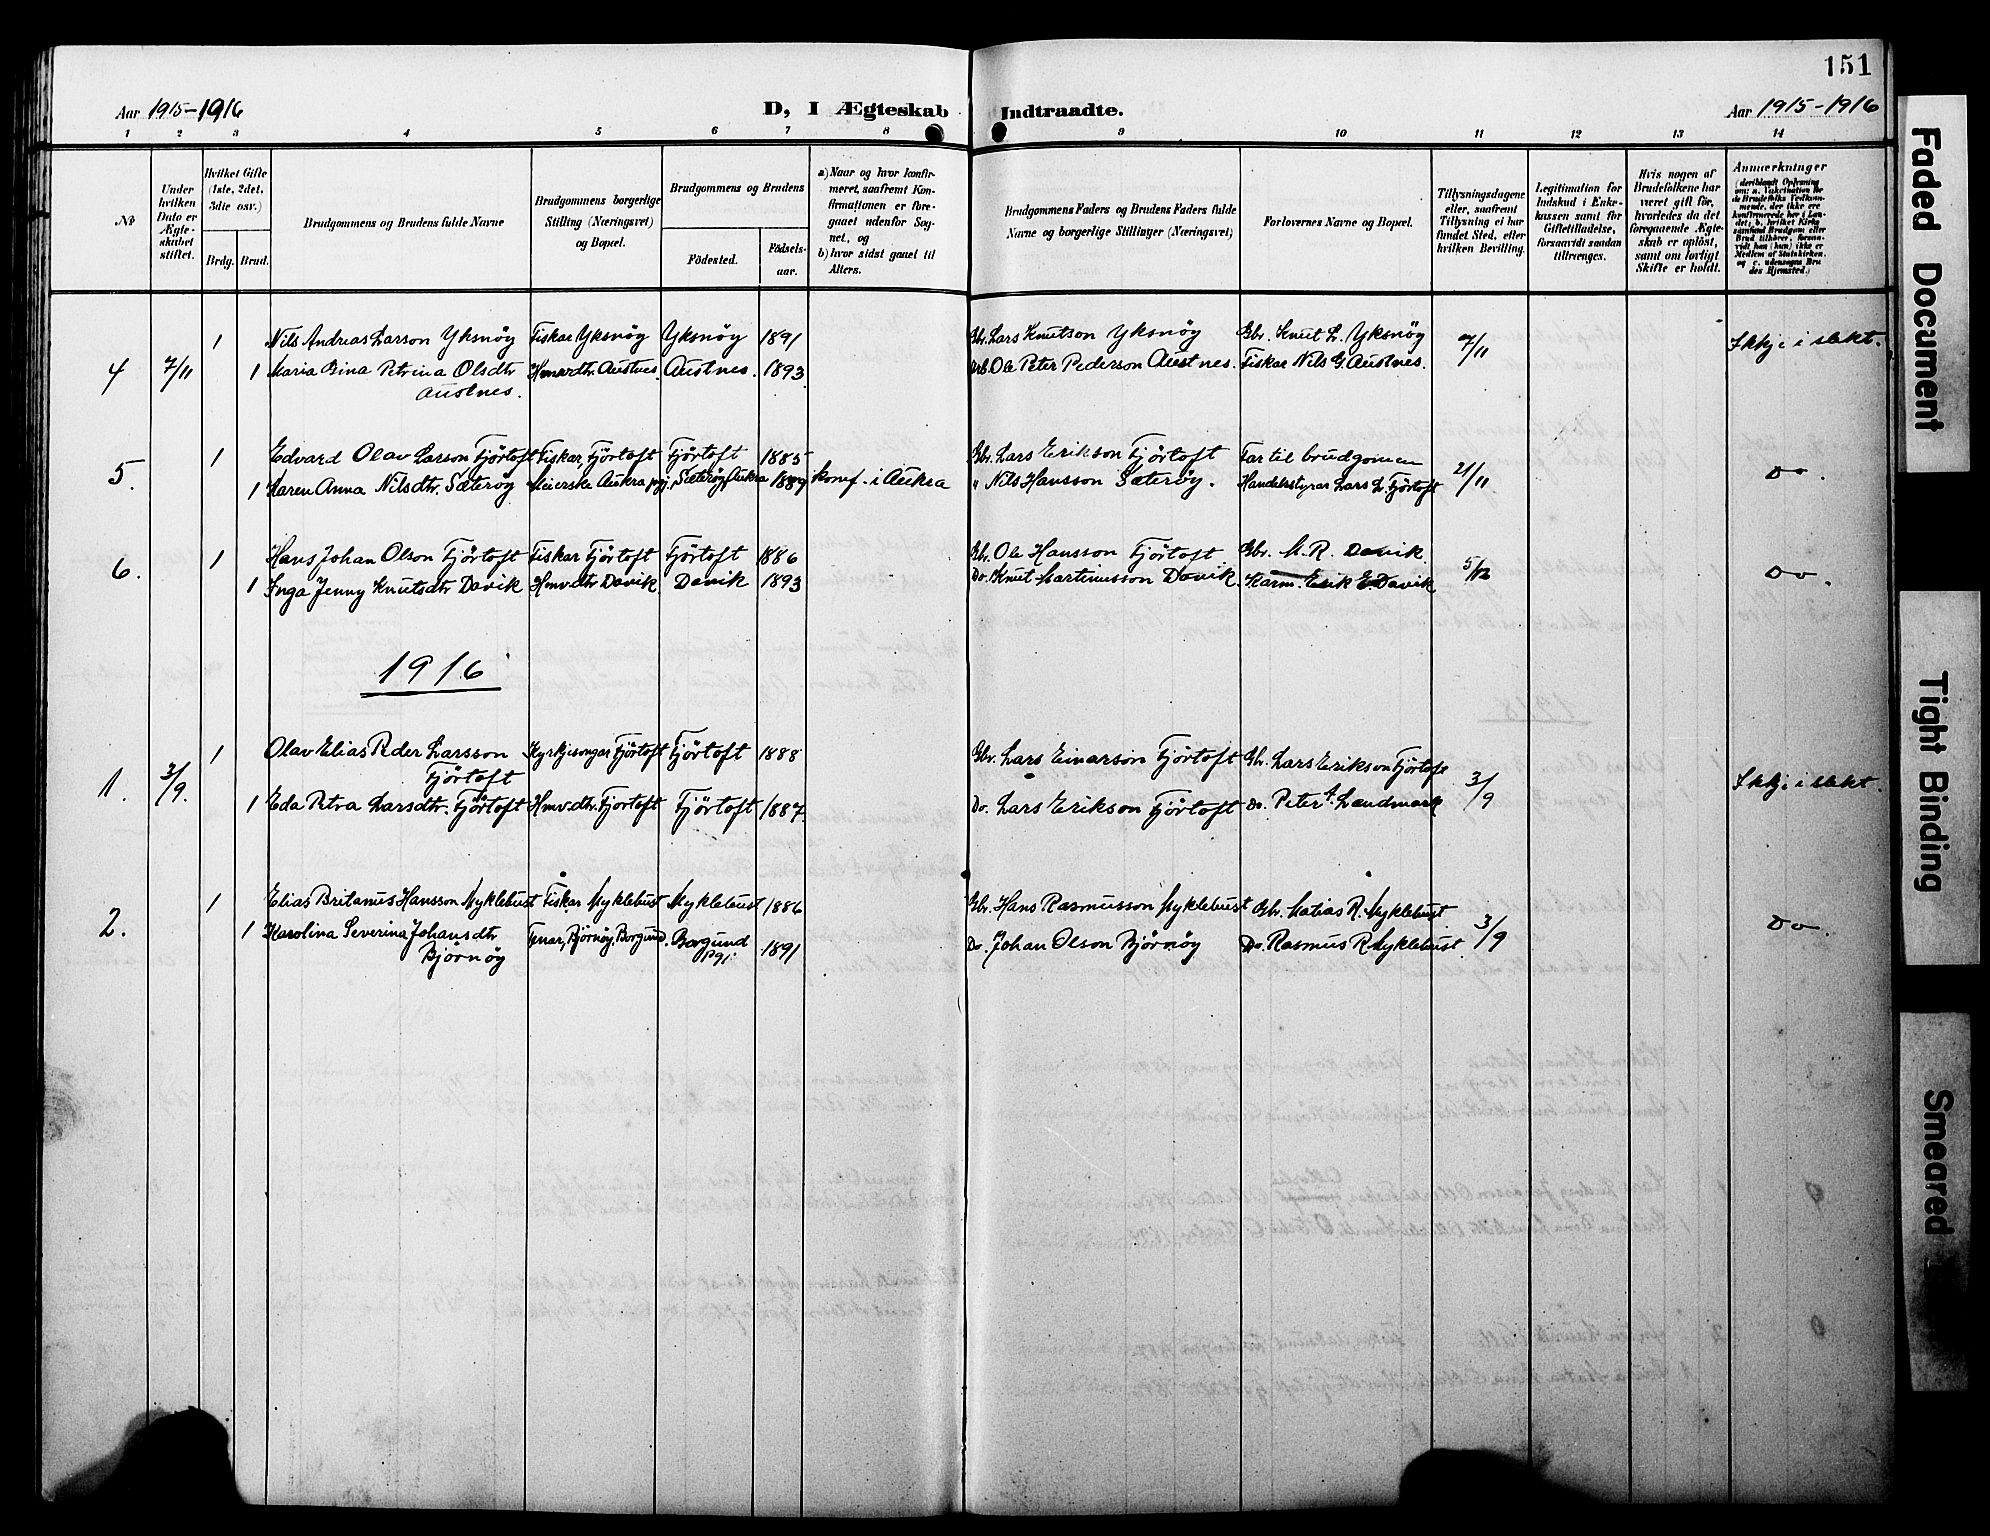 151
Aar 1915-1916
D, I Ægteskab Indtraadte.
Aar 1915-1916
1 2 3 4 5 6 7 8 9 10 11 12 13 14
No
Under hvilken Dato er Ægteskabet stiftet.
Hvilket Gifte (1ste, 2det, 3die osv.)
Brdg. Brud.
Brudgommens og Brudens fulde Navne
Brudgommens borgerlige Stilling (Næringsvei) og Bopæl.
Brudgommens og Brudens
Fødested.
Fødselsaar.
a) Naar og hvor konfirmeret, saafremt Konfirmationen er foregaaet udenfor Sognet, og
b) hvor sidst gaaet til Alters.
Brudgommens Faders og Brudens Faders fulde Navne og borgerlige Stillinger (Næringsvei)
Forlovernes Navne og Bopæl.
Tillysningsdagene eller, saafremt Tillysning ei har fundet Sted, efter hvilken Bevilling.
Legitimation for Indskud i Enkekassen samt for Giftetilladelse, forsaavidt saadan tiltrænges.
Hvis nogen af Brudefolkene har været gift før, hvorledes da det foregaaende Ægteskab er opløst, samt om lovligt Skifte er holdt.
Anmærkninger
(deriblandt Oplysning om: a. Vakcination for de Brudefolks Vedkommende, der ikke ere konfirmerede her i Landet; b. hvilket Kirkesamfund Brudgom eller Brud tilhører, forsaavidt han (hun) ikke er Medlem af Statskirken, og c. udensogns Brudes Hjemsted.)
4 7/11 1 Nils Andreas Larson Yksnøy Fiskar Yksnøy Yksnøy 1891 Gbr. Lars Knutson Yksnøy Gbr. Knut L. Yksnøy 7/11 Ikkje i slekt.
1 Maria Bina Petrina Olsdtr Austnes. Hmvdtr. Austnes. Austnes. 1893 Ole Peter Pederson Austnes. Fiskar Nils G. Austnes.
5. 1 Edvard Olav Larson Fjörtoft Fiskar, Fjörtoft Fjörtoft 1885 Gbr. Lars Erikson Fjörtoft Far til brudgomen 21/11 Do.
1 Karen Anna Nilsdtr. Sæterøy Meierske Aukra pgj. Sæterøy, Aukra konf. i Aukra " Nils Hansson Sæterøy. Handelsstyrar Lars L. Fjörtoft
6. 1 Hans Johan Olson Fjörtoft Fiskar Fjörtoft Fjörtoft 1886 Gbr. Ole Hansson Fjörtoft Gbr. M. R. Davik 5/12 Do.
1 Inga Jenny Knutsdtr Davik Hmvdtr Davik. Davik 1893 Do. Knut Martinusson Davik. Karm. Erik E. Davik
1916
1. 3/9. 1 Olav Elias Peder Larsson Fjörtoft Kyrkjesongar Fjörtoft Fjörtoft 1888 Gbr. Lars Einarson Fjörtoft Gbr. Lars Erikson Fjörtoft 3/9 Ikkje i slekt.
1 Eda Petra Larsdtr. Fjörtoft Hmvdtr. Fjörtoft Fjörtoft 1887. Do. Lars Erikson Fjörtoft Do. Peter Landmark
2. 1 Elias Britanus Hansson Myklebust Fiskar Myklebust Myklebust 1886 Gbr. Hans Rasmusson Myklebust Gbr. Matias R. Myklebust 3/9 Do.
1 Karolina Severina Johansdtr Bjørnøy Bjørnøy, Borgund. Borgund pgj. 1891 Do. Johan Olson Bjørnøy Do. Rasmus R. Myklebust.
Faded Document
Tight Binding
Smeared